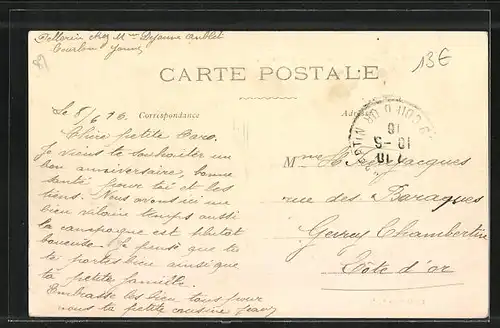 Pellerin chez Mme Dejoune Anblet
Tourlon Yonne
13€
CARTE POSTALE
Correspondance
Le 8/6 16
Chère petite Caro.
Je viens te souhaiter un
bon anniversaire, bonne
santé pour toi et les
tiens. Nous avons ici un
bien vilain temps aussi
la campagne est plutôt
boueuse. Je pense que tu
te portes bien ainsi que
ta petite famille.
Embrasse les bien tous pour
nous ta petite cousine Jean
Mme Jacques
rue des Baraques
Gevrey Chambertin
Côte d'or
COTE D'OR